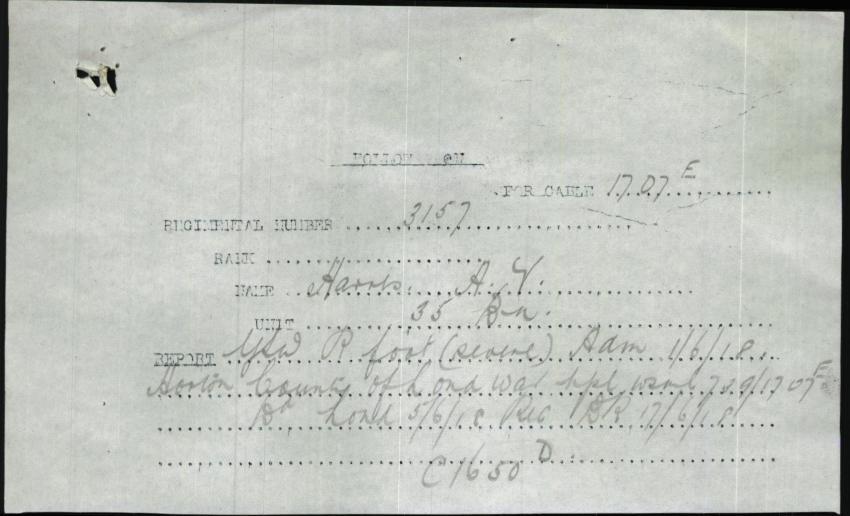 FOLLOW ON
FOR CABLE 1707 E
REGIMENTAL NUMBER 3157
RANK
NAME Harris. A. V.
UNIT 35 Bn.
REPORT GSW R foot (severe) Adm 1/6/18
Horton County of Lond War hpl 1707 E
Lond 5/6/18 Rec BR 17/6/18
C 1650 D